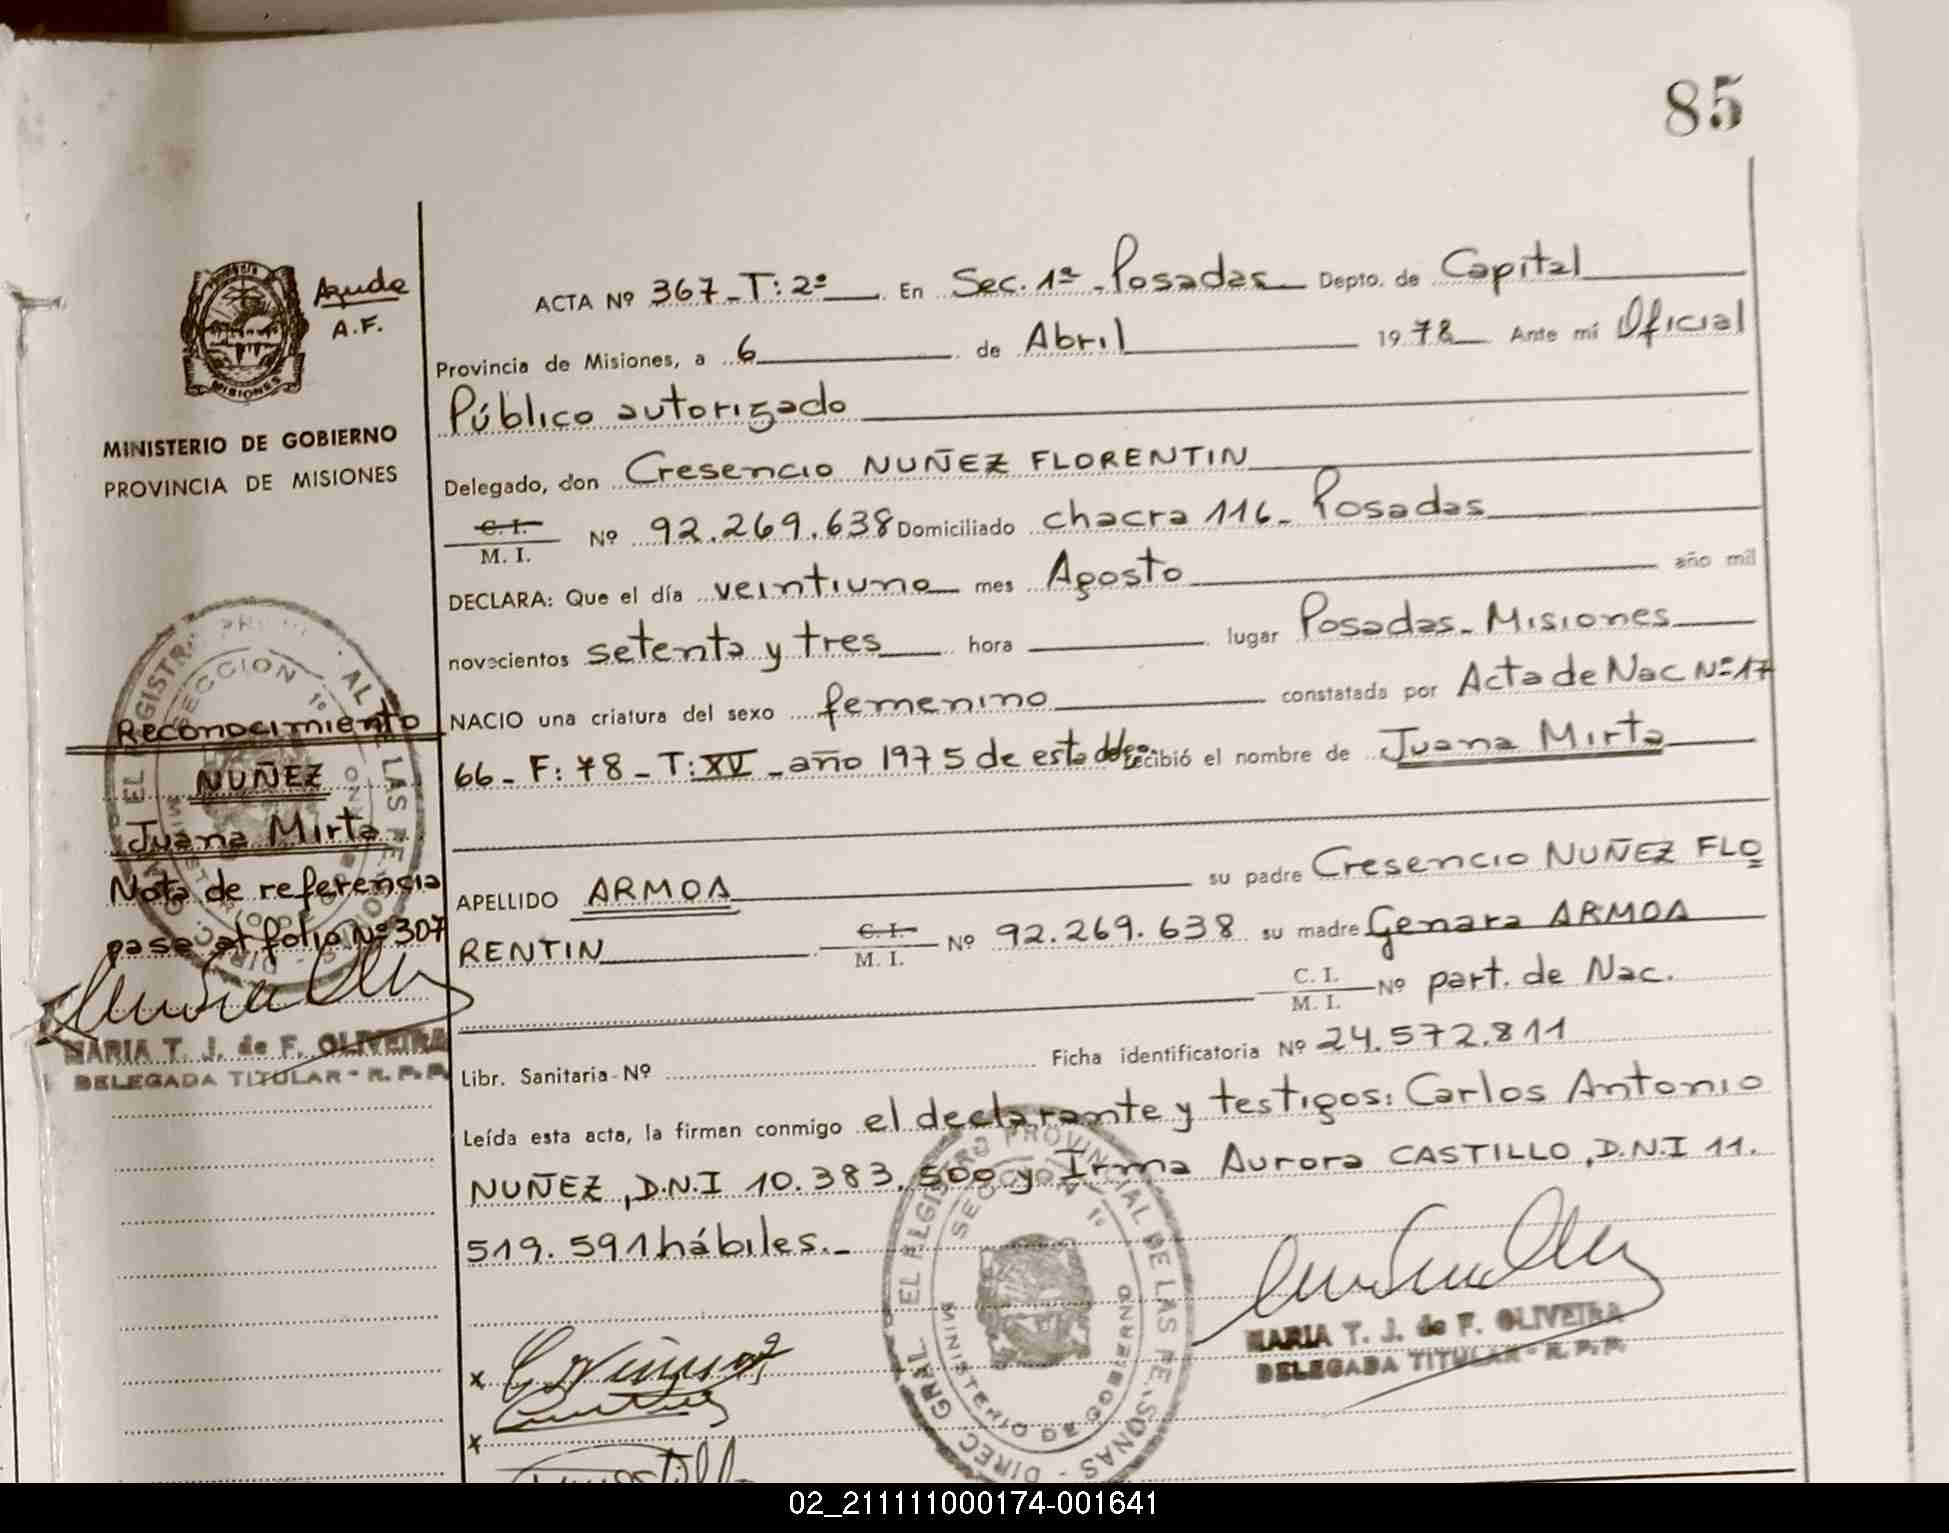 85
Ayuda
A.F.
MISIONES
MINISTERIO DE GOBIERNO
PROVINCIA DE MISIONES
ACTA Nº 367_T:2º En Sec. 1ª_Posadas Depto. de Capital
Provincia de Misiones, a 6 de Abril 1978 Ante mí Oficial
Público autorizado
Delegado, don Cresencio NUÑEZ FLORENTIN
C. I.
M. I. Nº 92.269.638 Domiciliado chacra 116_ Posadas
DECLARA: Que el día veintiuno mes Agosto año mil
novecientos setenta y tres hora lugar Posadas_Misiones
NACIO una criatura del sexo femenino constatada por Acta de Nac Nº 17
66_ F: 78_ T: XV _año 1975 de esta recibió el nombre de Juana Mirta
APELLIDO ARMOA su padre Cresencio NUÑEZ FLO
RENTIN C. I.
M. I. Nº 92.269.638 su madre Genara ARMOA
C. I.
M. I. Nº part. de Nac.
Libr. Sanitaria Nº Ficha identificatoria Nº 24.572.811
Leída esta acta, la firman conmigo el declarante y testigos: Carlos Antonio
NUÑEZ, D.N.I 10.383.500 y Irma Aurora CASTILLO, D.N.I 11.
519.591 hábiles._
Reconocimiento
NUÑEZ
Juana Mirta
Nota de referencia
pasa al folio Nº 307
MARIA T. J. de F. OLIVEIRA
DELEGADA TITULAR - R. P. P.
SECCION 1º
MINISTERIO DE GOBIERNO
MARIA T. J. de F. OLIVEIRA
DELEGADA TITULAR - R. P. P.
x
x
02_211111000174-001641